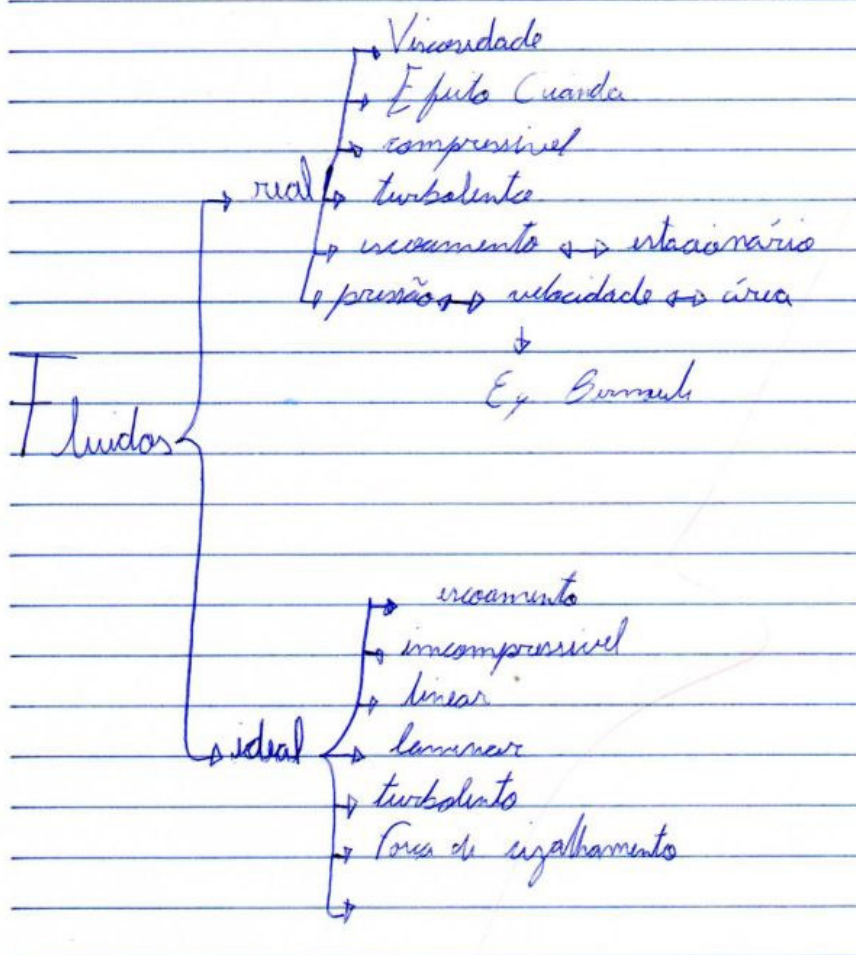 Viscosidade
Efeito Cuanda
compressivel
real turbolento
escoamento ↔ estacionário
pressão ↔ velocidade ↔ área
Eq Bernoulli
Fluidos
escoamento
imcompressivel
linear
ideal laminar
turbolento
Força de cizalhamento